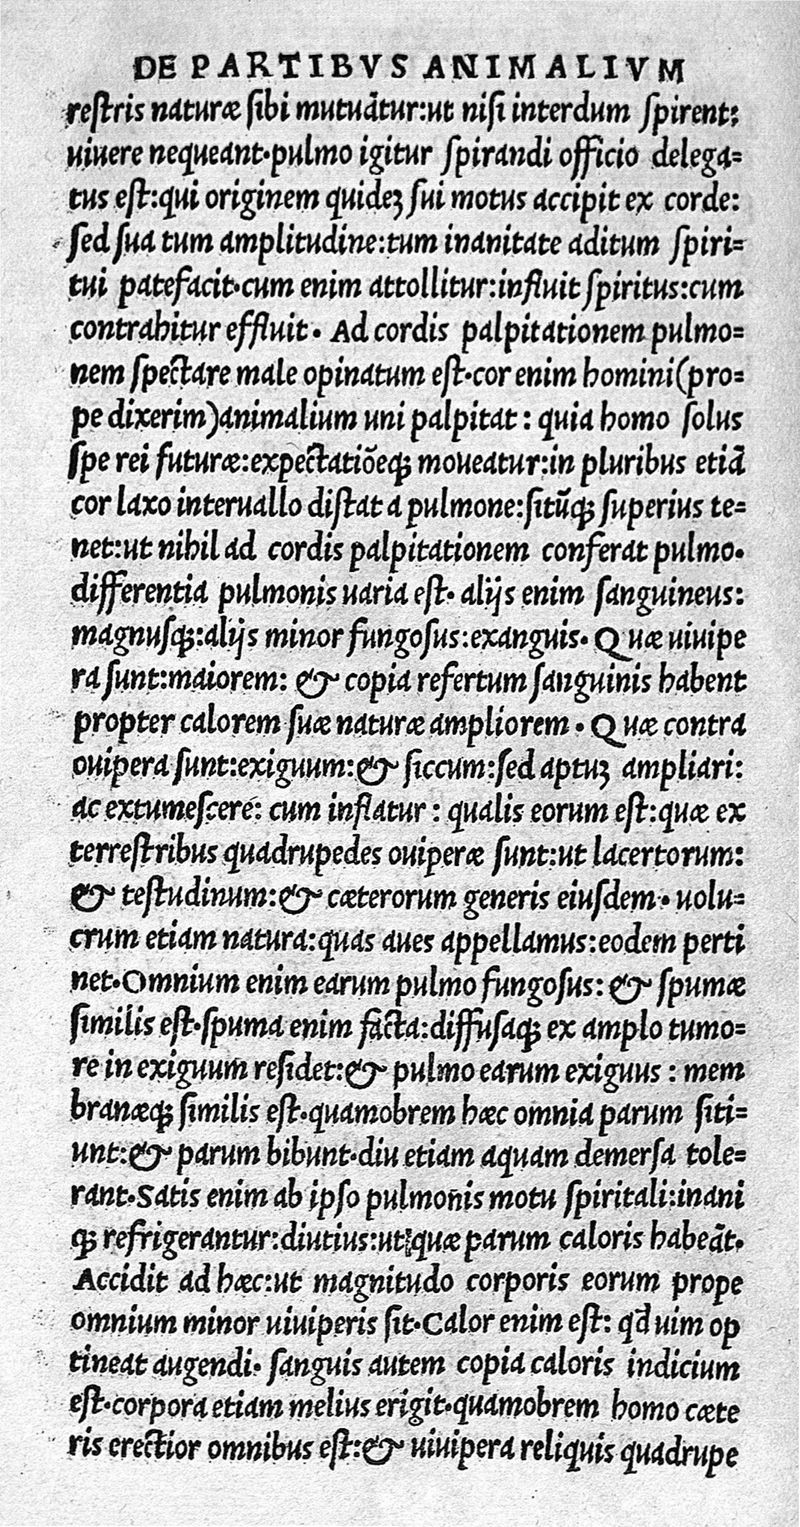 DE PARTIBVS ANIMALIVM
reſtris naturæ ſibi mutuãtur:ut niſi interdum ſpirent:
uiuere nequeant.pulmo igitur ſpirandi officio delega=
tus eſt:qui originem quideꝫ ſui motus accipit ex corde:
ſed ſua tum amplitudine:tum inanitate aditum ſpiri=
tui patefacit.cum enim attollitur:influit ſpiritus:cum
contrahitur effluit. Ad cordis palpitationem pulmo=
nem ſpectare male opinatum eſt.cor enim homini(pro=
pe dixerim)animalium uni palpitat: quia homo ſolus
ſpe rei futuræ:expectatiõeqꝫ moueatur:in pluribus etiã
cor laxo interuallo diſtat a pulmone:ſitũqꝫ ſuperius te=
net:ut nihil ad cordis palpitationem conferat pulmo.
differentia pulmonis uaria eſt. alijs enim ſanguineus:
magnuſqꝫ:alijs minor fungoſus:exanguis. Quæ uiuipe
ra ſunt:maiorem: & copia refertum ſanguinis habent
propter calorem ſuæ naturæ ampliorem. Quæ contra
ouipera ſunt:exiguum:& ſiccum:ſed aptuꝫ ampliari:
ac extumeſcere: cum inflatur: qualis eorum eſt:quæ ex
terreſtribus quadrupedes ouiperæ ſunt:ut lacertorum:
& teſtudinum:& cæterorum generis eiuſdem. uolu=
crum etiam natura:quas aues appellamus:eodem perti
net.Omnium enim earum pulmo fungoſus: & spumæ
ſimilis eſt.ſpuma enim facta:diffuſaqꝫ ex amplo tumo=
re in exiguum reſidet:& pulmo earum exiguus: mem
branæqꝫ ſimilis eſt.quamobrem hæc omnia parum ſiti=
unt:& parum bibunt.diu etiam aquam demerſa tole=
rant.Satis enim ab ipſo pulmonis motu ſpiritali:inani
qꝫ refrigerantur:diutius:ut quæ parum caloris habeãt.
Accidit ad hæc:ut magnitudo corporis eorum prope
omnium minor uiuiperis ſit.Calor enim eſt: qđ uim op
tineat augendi. ſanguis autem copia caloris indicium
eſt.corpora etiam melius erigit.quamobrem homo cæte
ris erectior omnibus eſt:& uiuipera reliquis quadrupe